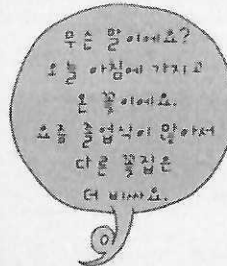 무슨 말이에요?
오늘 아침에 가지고
온 꽃이에요.
요즘 졸업식이 많아서
다른 꽃집은
더 비싸요.